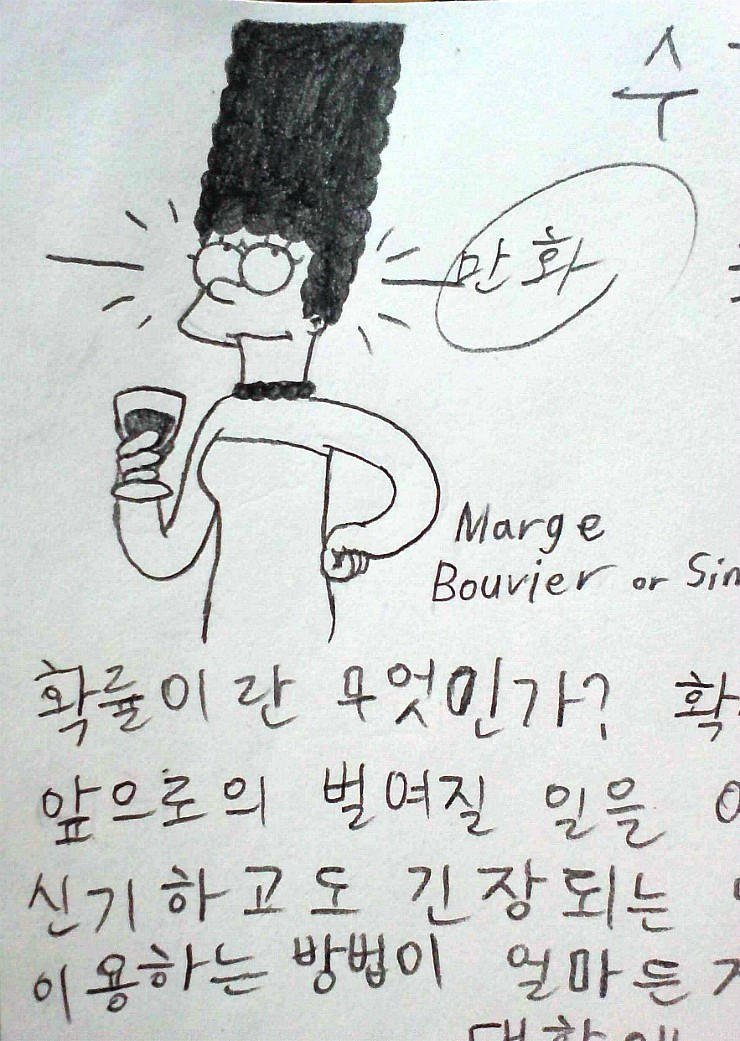 수
만화
Marge
Bouvier or Sin
확률이란 무엇인가? 확
앞으로의 벌여질 일을
신기하고도 긴장되는
이용하는 방법이 얼마든
대학에